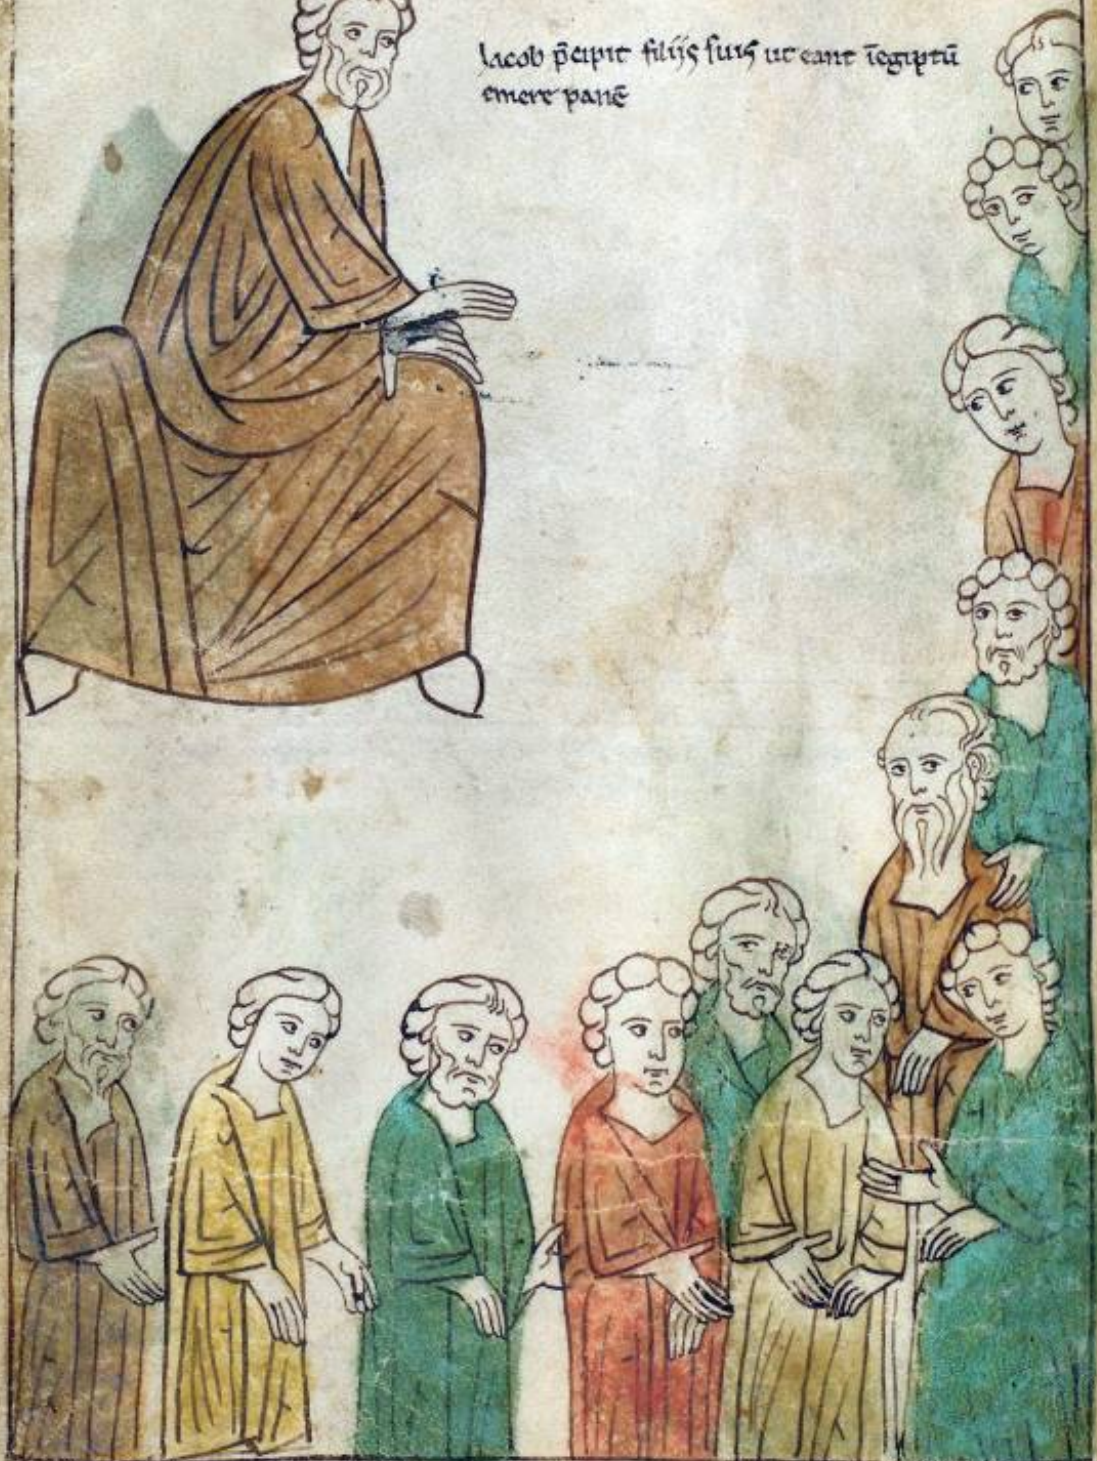 Iacob p̄cipit filijs suis ut eant īegiptū
emere panē